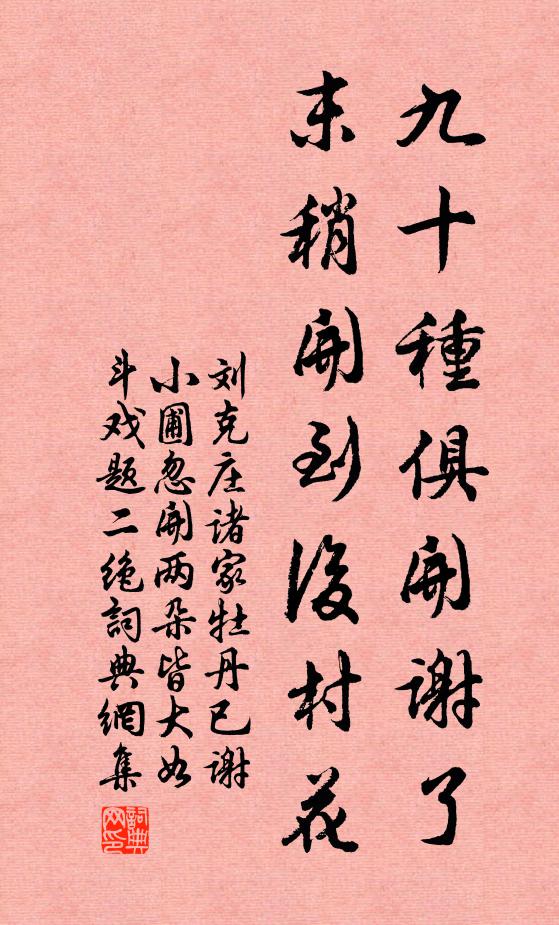 九十種俱開謝了
末稍開到後村花
刘克庄诸家牡丹已谢
小圃忽開两朵皆大如
斗戏题二绝詞典網集
詞典
网印